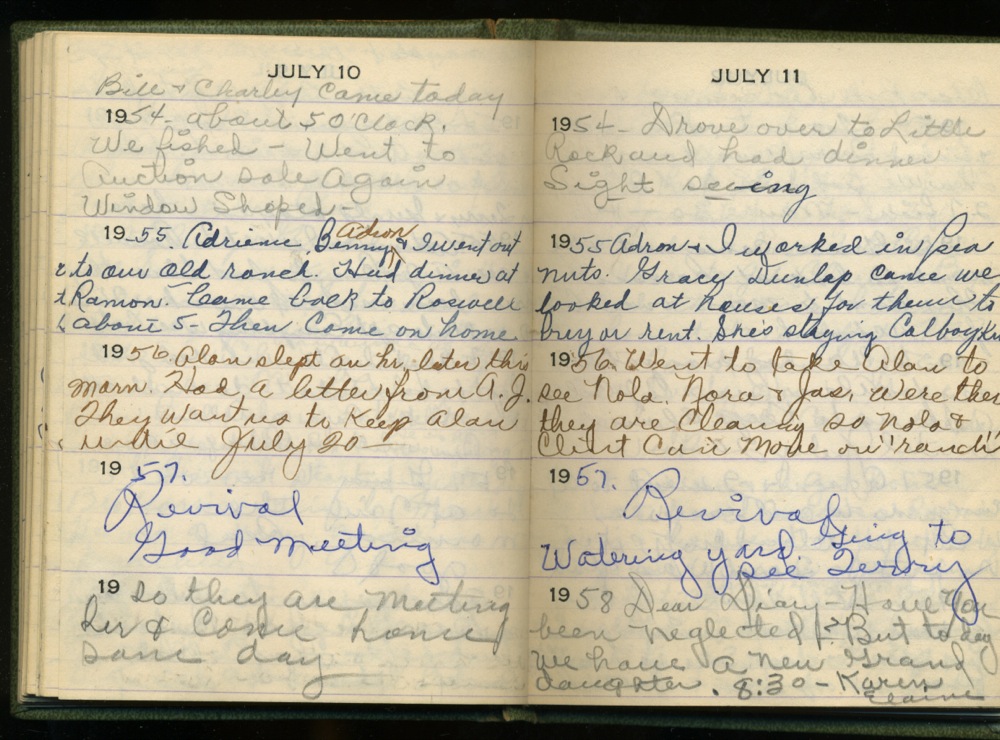 JULY 10
Bill + Charley came today
1954- about 5 O'Clock.
We fished - Went to
Auction sale Again
Window Shoped-
Adron
1955. Adriene Benny & I went out
to our old ranch. Had dinner at
Ramon. Came back to Roswell
about 5- Then Come on home
1956. Alan slept an hr. later this
morn. Had a letter from A.J.
They want us to Keep Alan
until July 20-
1957.
Revival
Good meeting
19 So they are meeting
her & Come home
same day
JULY 11
1954- Drove over to Little
Rock and had dinner
Sight seeing
1955 Adron + I worked in pea
nuts. Gracy Dunlap came we
looked at houses for them to
buy or rent. She's staying
1956 Went to take Alan to
see Nola. Nora & Jas. were ther
they are Cleaning so Nola &
Clint Can Move on "ranch"
1957. Revival
Watering yard. Going to
see Terry
1958 Dear Diary- Have You
been neglected!? But today
we have a new Grand
daughter. 8:30- Karen
Elaine